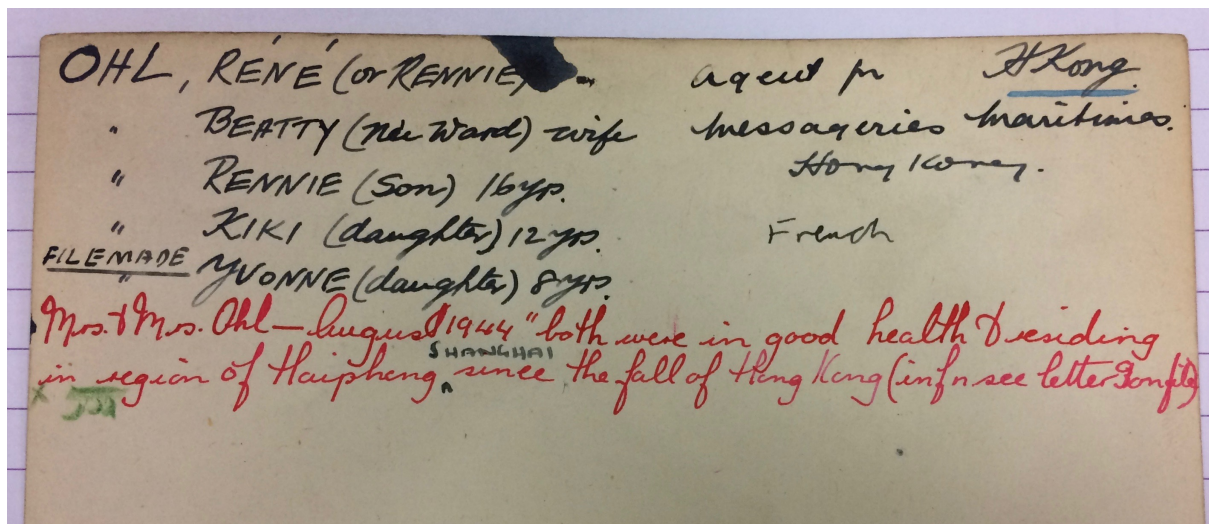 OHL, RÉNÉ (or RENNIE) agent for HKong
" BEATTY (née Ward) wife Messageries Maritimes.
" RENNIE (Son) 16 yrs. Hong Kong.
" KIKI (daughter) 12 yrs. French
FILE MADE
" YVONNE (daughter) 8 yrs.
Mrs. & Mrs. Ohl — August 1944 "both were in good health & residing
SHANGHAI
in region of Haiphong ^ since the fall of Hong Kong (infn see letter on file)
x